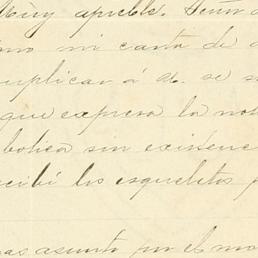 Muy apreble. Señor
mi carta de
suplicar á U. se s
que expresa la not
botica sin existenc
cibí los esqueletos p
mas asunto por el mo